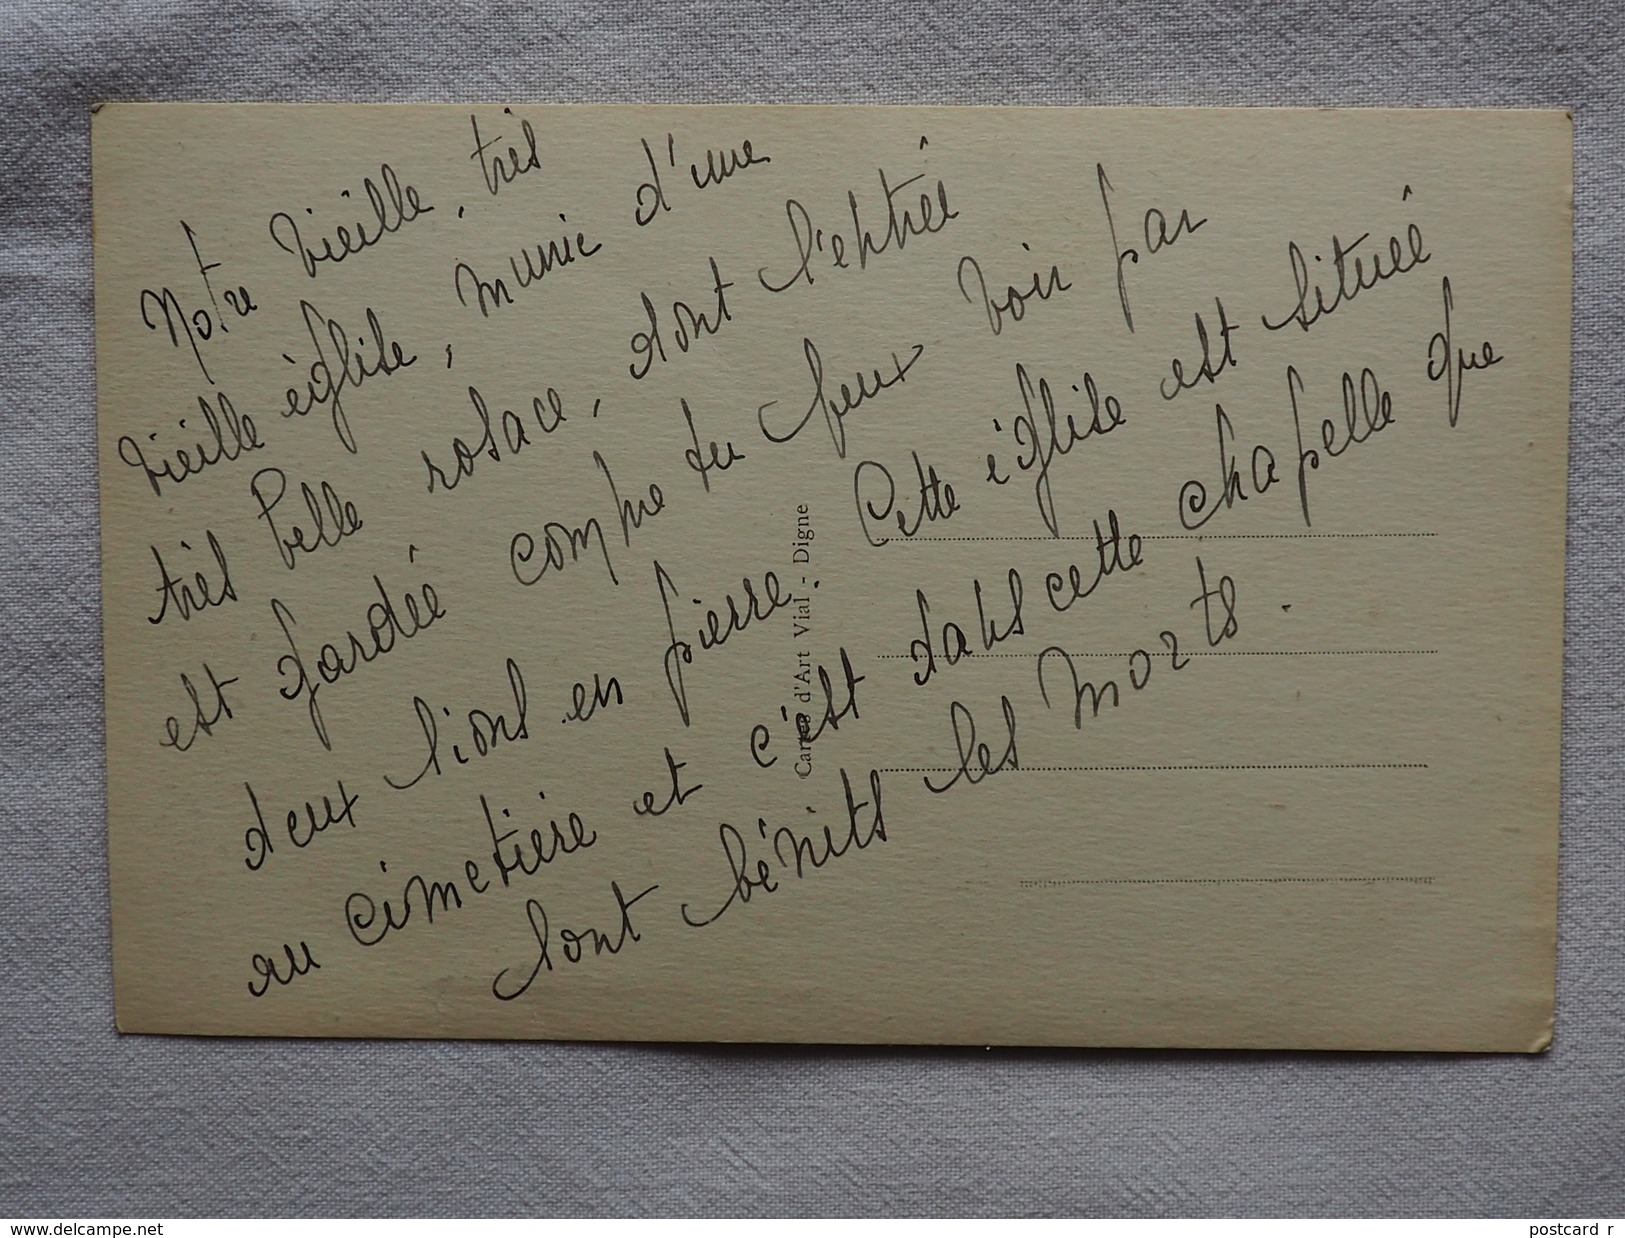 Notre vieille, très
vieille église, munie d'une
très belle rosace, dont l'entrée
est gardée comme tu peux voir par
deux lions en pierre. Cette église est située
au cimetière et c'est dans cette chapelle que
sont bénits les morts.
Cartes d'Art Vial - Digne
www.delcampe.net
postcard_r